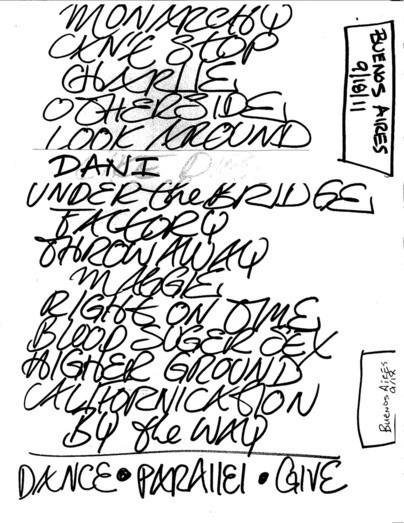 MONARCHY
CAN'T STOP
CHARLIE
OTHERSIDE
LOOK AROUND
DANI
UNDER the BRIDGE
FACTORY
THROWAWAY
MAGGIE
RIGHT ON TIME
BLOOD SUGER SEX
HIGHER GROUND
CALIFORNICATION
BY the WAY
DANCE • PARALLEl • GIVE
BUENOS AIRES
9/18/11
BUENOS AIRES